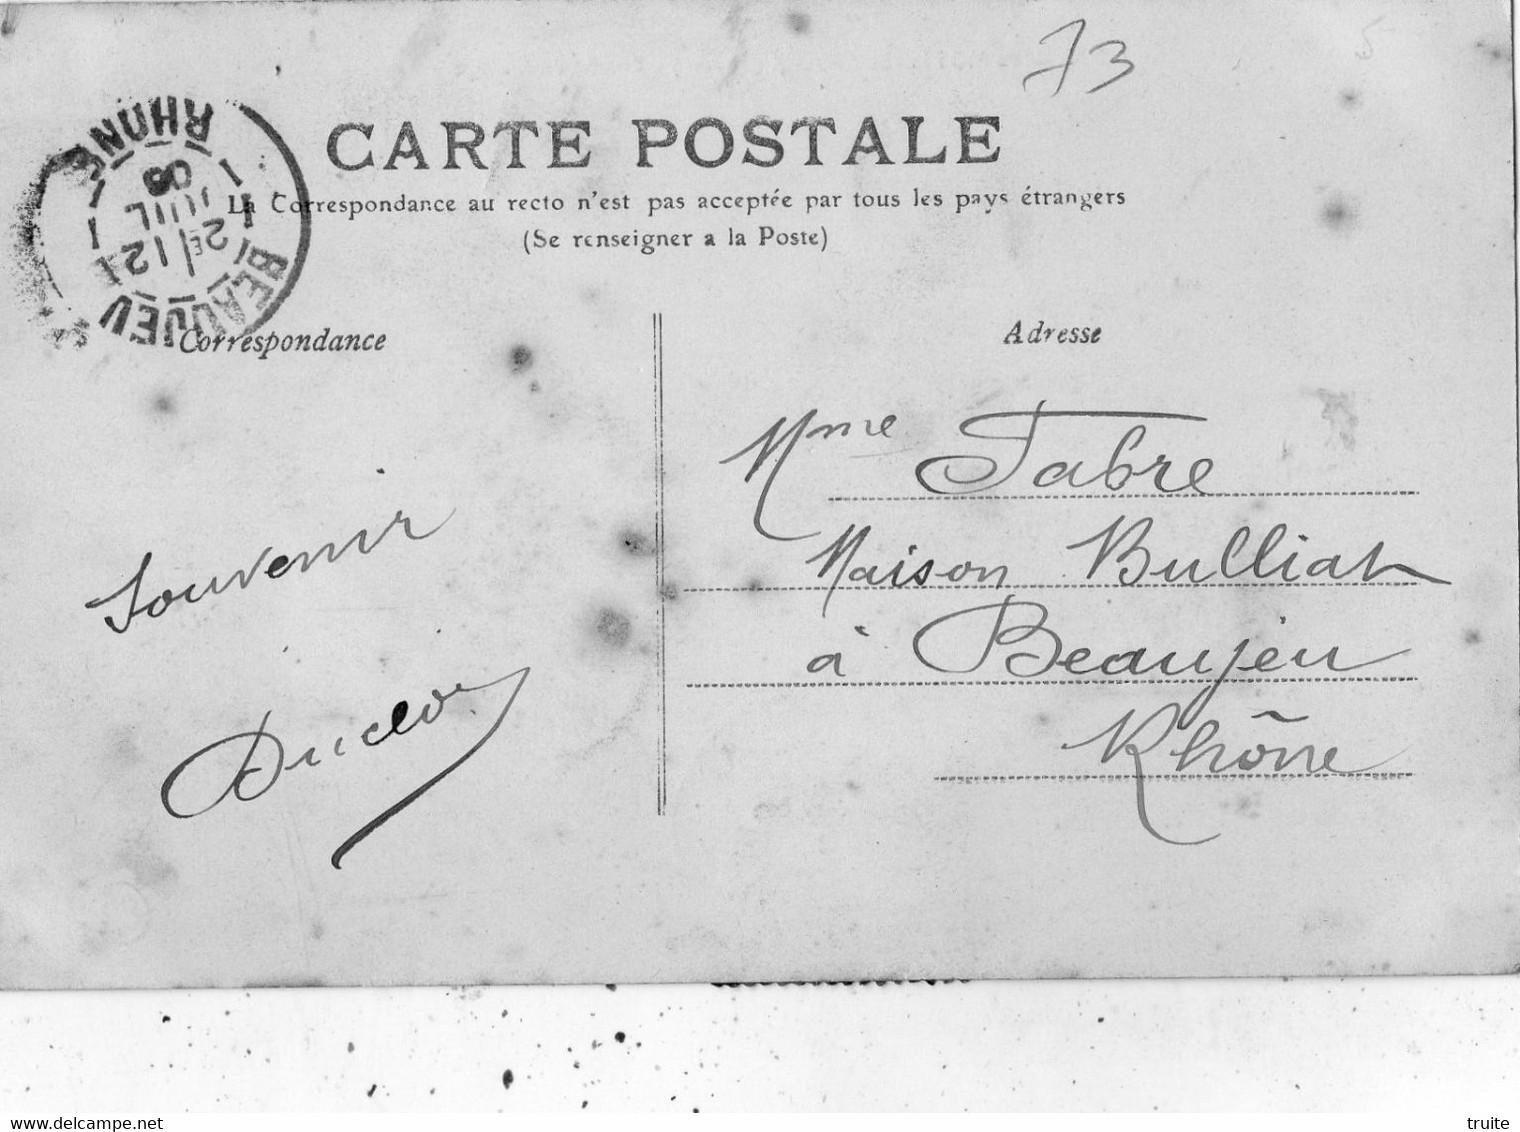 73
CARTE POSTALE
La Correspondance au recto n'est pas acceptée par tous les pays étrangers
(Se renseigner a la Poste)
BEAUJEU
2E/12
JUIL
RHONE
Correspondance
Adresse
Souvenir
Mme Fabre
Maison Bulliat
à Beaujeu
Rhône
www.delcampe.net
truite